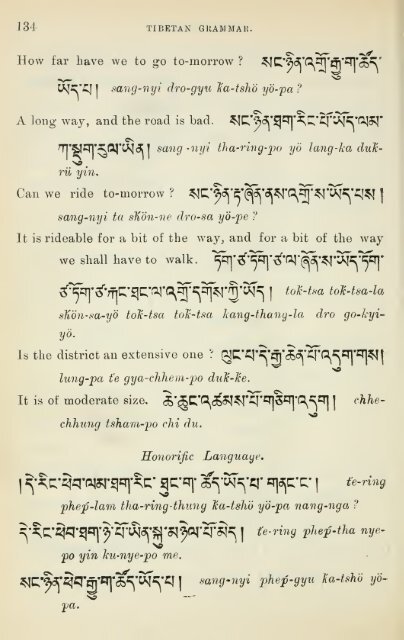 134 TIBETAN GRAMMAR.
How far have we to go to-morrow ? སང་ཉིན་འགྲོ་རྒྱུ་ག་ཚོད་
ཡོད་པ། sang-nyi dro-gyu k̔a-tshö yö-pa ?
A long way, and the road is bad. སང་ཉིན་ཐག་རིང་པོ་ཡོད་ལམ་
ཀ་སྡུག་རུལ་ཡིན། sang-nyi tha-ring-po yö lang-ka duk-
rü yin.
Can we ride to-morrow ? སང་ཉིན་རྟ་ཞོན་ནས་འགྲོ་ས་ཡོད་པས །
sang-nyi ta sk̔ön-ne dro-sa yö-pe ?
It is rideable for a bit of the way, and for a bit of the way
we shall have to walk. ཏོག་ཙ་ཏོག་ཙ་ལ་ཞོན་ས་ཡོད་ཏོག་
ཙ་ཏོག་ཙ་རྐང་ཐང་ལ་འགྲོ་དགོས་ཀྱི་ཡོད། tok-tsa tok-tsa-la
sk̔ön-sa-yö tok-tsa tok-tsa kang-thang-la dro go-kyi-
yö.
Is the district an extensive one ? ལུང་པ་དེ་རྒྱ་ཆེན་པོ་འདུག་གས།
lung-pa t̔e gya-chhem-po duk-ke.
It is of moderate size. ཆེ་ཆུང་འཚམས་པོ་གཅིག་འདུག། chhe-
chhung tsham-po chi du.
Honorific Language.
།དེ་རིང་ཕེབ་ལམ་ཐག་རིང་ ཐུང་ག་ ཚོད་ཡོད་པ་ གནང་ང་། te-ring
phep-lam tha-ring-thung k̔a-tshö yö-pa nang-nga ?
དེ་རིང་ཕེབ་ཐག་ཉེ་པོ་ཡིན་སྐུ་མཉེལ་པོ་མེད། t̔e-ring phep-tha nye-
po yin ku-nye-po me.
སང་ཉིན་ཕེབ་རྒྱུ་ག་ཚོད་ཡོད་པ། sang-nyi phep-gyu k̔a-tshö yö-
pa.